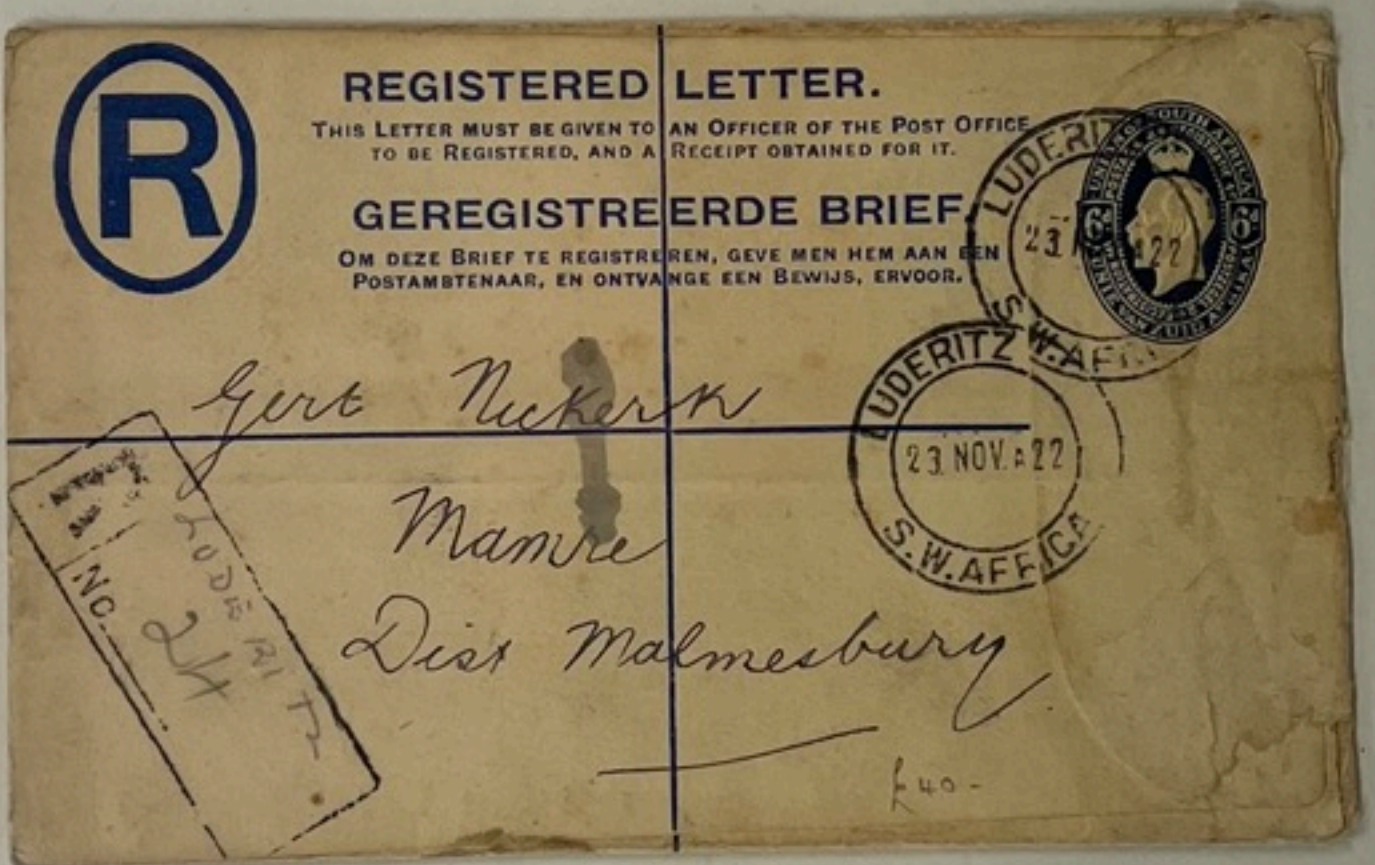 R
REGISTERED LETTER.
THIS LETTER MUST BE GIVEN TO AN OFFICER OF THE POST OFFICE
TO BE REGISTERED, AND A RECEIPT OBTAINED FOR IT.
GEREGISTREERDE BRIEF.
OM DEZE BRIEF TE REGISTREREN, GEVE MEN HEM AAN EEN
POSTAMBTENAAR, EN ONTVANGE EEN BEWIJS, ERVOOR.
6d 6d
LUDERITZ
23 A22
S.W.AFRI
LUDERITZ
23 NOV.A22
S.W.AFRICA
Gert Niekerk
Mamre
Dist Malmesbury
£40-
No. 24
LUDERITZ